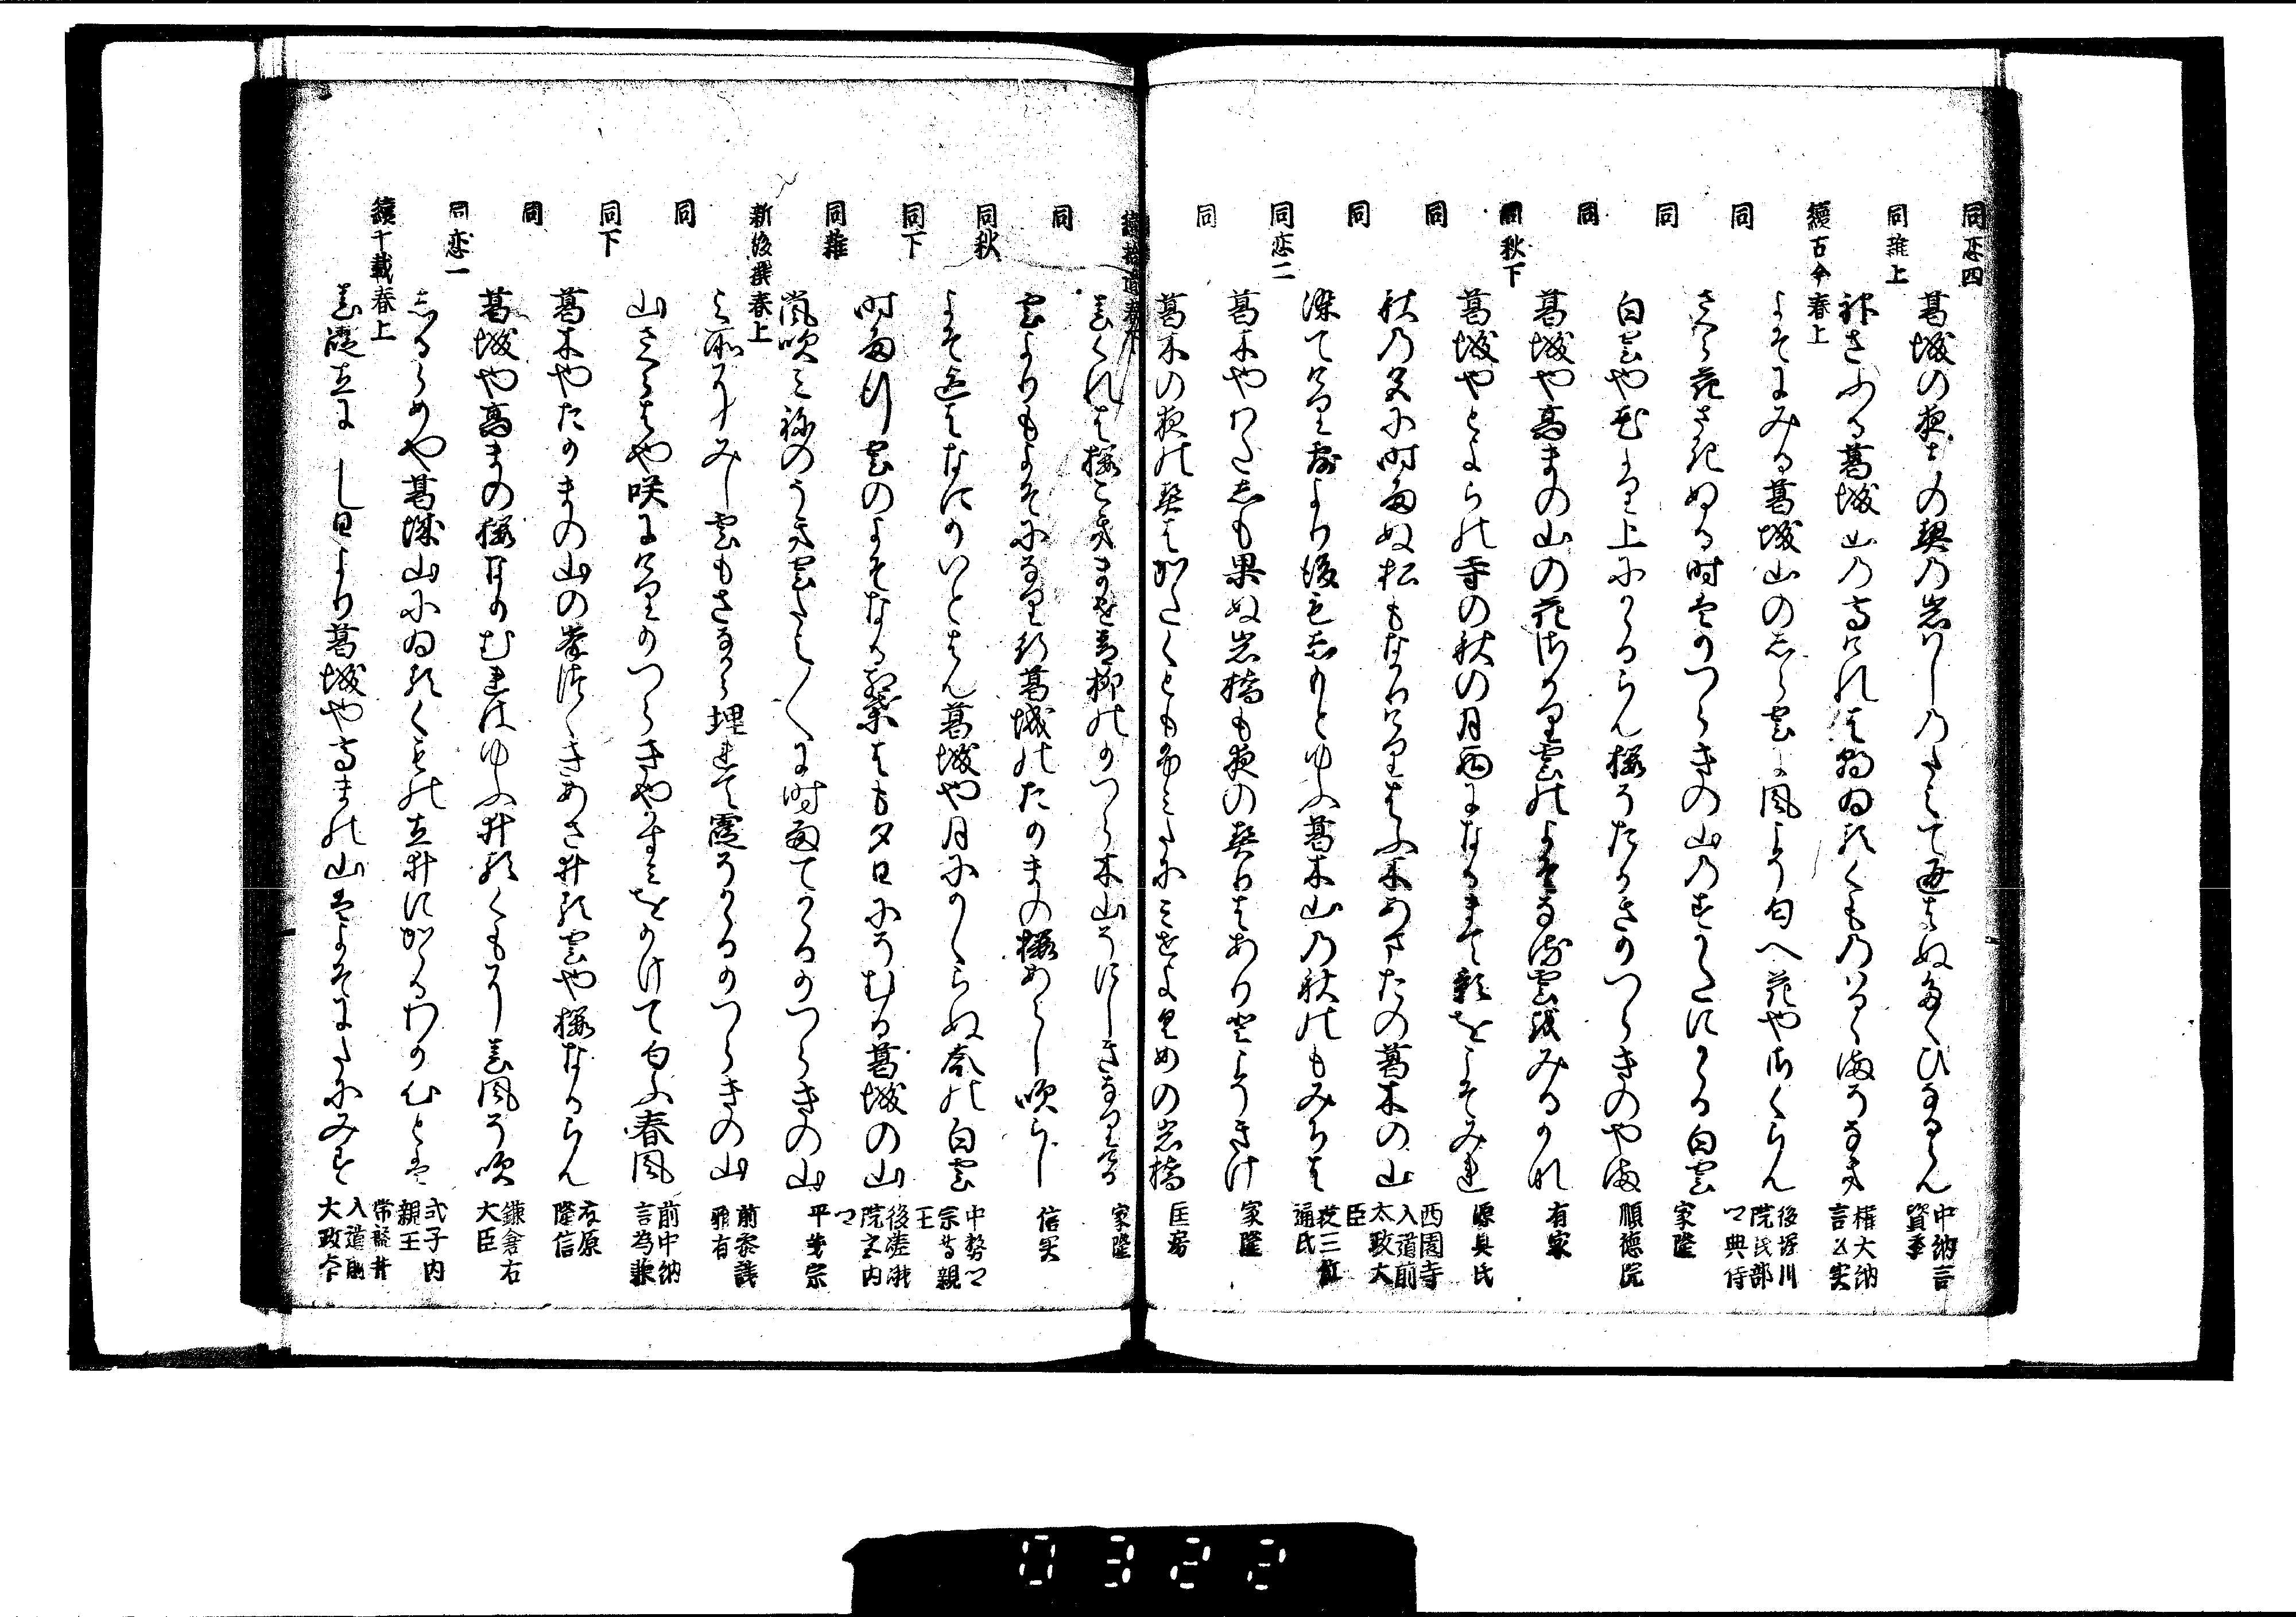 同恋四
葛城の夜はの契の岩はしのたえて通はぬなくひなるらん 中納言資季
同雑上
神さふる葛城山の高けれは朝ゐるくものはるゝまそなき 権大納言公実
續古今春上
よそにみる葛城山のしら雲に風こそ匂へ花やさくらん 後堀川院民部卿典侍
同
さくら花さきぬる時はかつらきの山のすかたにかゝる白雲 家隆
同
白雲や花より上にかゝるらん桜そたかきかつらきのやま 順徳院
同
葛城や高まの山の花さかり雲のよそなる雲をみるかな 有家
同秋下
葛城やとよらの寺の秋の月西になるまて影をこそみれ 源具氏
同
秋の色に時雨ぬ松もなかりけりはふ木あまたの葛木の山 西園寺入道前太政大臣
同
染てけり露より後もしもとゆふ葛木山の秋のもみちは 従三位通氏
同恋二
葛木やわたしも果ぬ岩橋も夜の契りはありとこそきけ 家隆
同
葛木の夜の契はかたくともふみたにみせよくめの岩橋 匡房
續拾遺春下
春くれは桜こきませ青柳のかつらき木山そにしきなりける 家隆
同
雲よりもよそになり行葛城のたかまの桜あらし吹らし 信実
同秋
よそ迄はなにかいとはん葛城や月にかゝらぬ峯の白雲 中務卿宗尊親王
同下
時雨行雲のよそなる紅葉はも夕日にそむる葛城の山 後嵯峨院宮内卿
同雑
嵐吹こすゑのうき雲たえ〳〵に時雨てかゝるかつらきの山 平義宗
新後撰春上
よそにみし雲もさなから埋れて霞そかゝるかつらきの山 前参議雅有
同
山さくらはや咲にけりかつらきやかすみをかけて匂ふ春風 前中納言為兼
同下
葛木やたかまの山の峯つゝきあさゐる雲や桜なるらん 友原隆信
同
葛城や高まの桜なかむれはゆふゐるくもに春風そ吹 鎌倉右大臣
同恋一
しるらめや葛城山にゐるくもの立ゐにかゝるわか心とは 式子内親王
續千載春上
春霞立にし日より葛城や高まの山はよそにたにみす 常盤井入道前太政大臣
0322